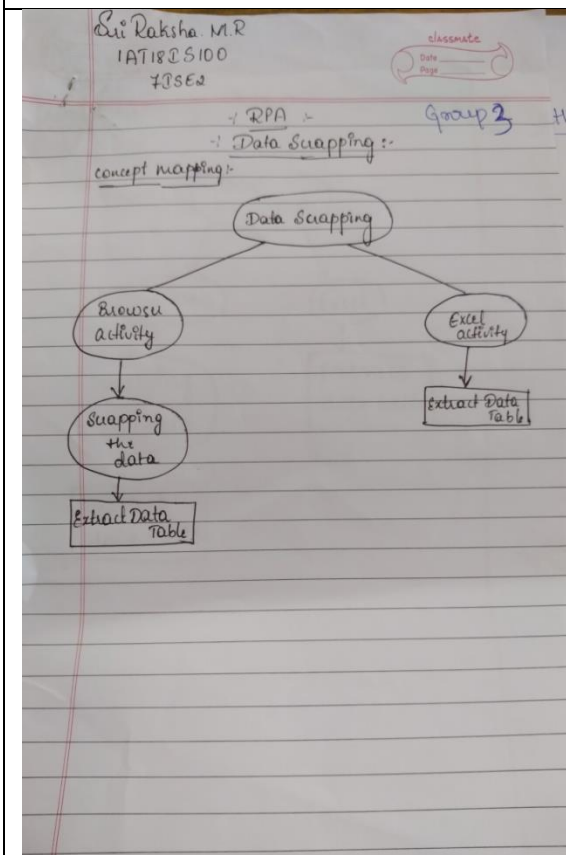 Sri Raksha. M.R
1AT18IS100
7ISE2
classmate
Date
Page
-: RPA :-
Group 3 H
-: Data Scrapping :-
concept mapping:-
Data Scrapping
Browser
activity
Excel
activity
Scrapping
the
data
Extract Data
Table
Extract Data
Table